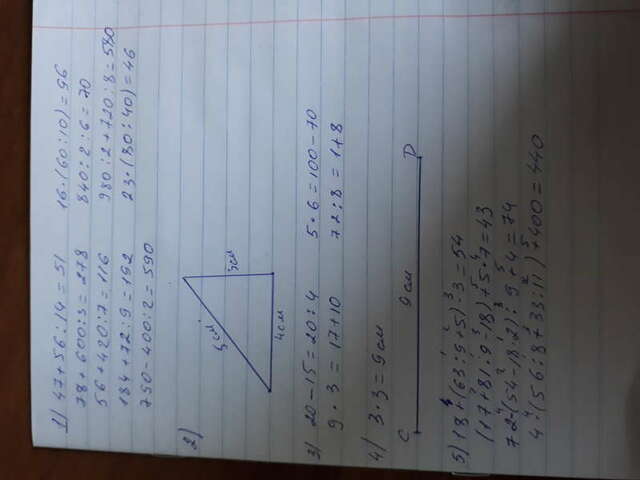 1) 47+56:14=51   16·(60:10)=96
78+600:3=278   840:2:6=70
56+420:7=116   980:2+720:8=580
184+72:9=192   23·(80:40)=46
790-400:2=590
2)
5см
3см
4см
3) 20-15=20:4   5·6=100-70
9·3=17+10   72:8=1+8
4) 3·3=9см
C 9см D
5) 18+(63:9+5)·3=54
(17+81:9-18)+5·7=43
72-(54-18·2):9+4=74
4·(56:8+33:11)+400=440